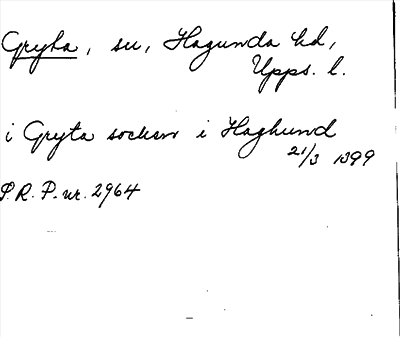 Gryta, sn, Hagunda hd,
Upps. l.
i Gryta sochen i Haghund
21/3 1399
S.R.P. nr. 2964